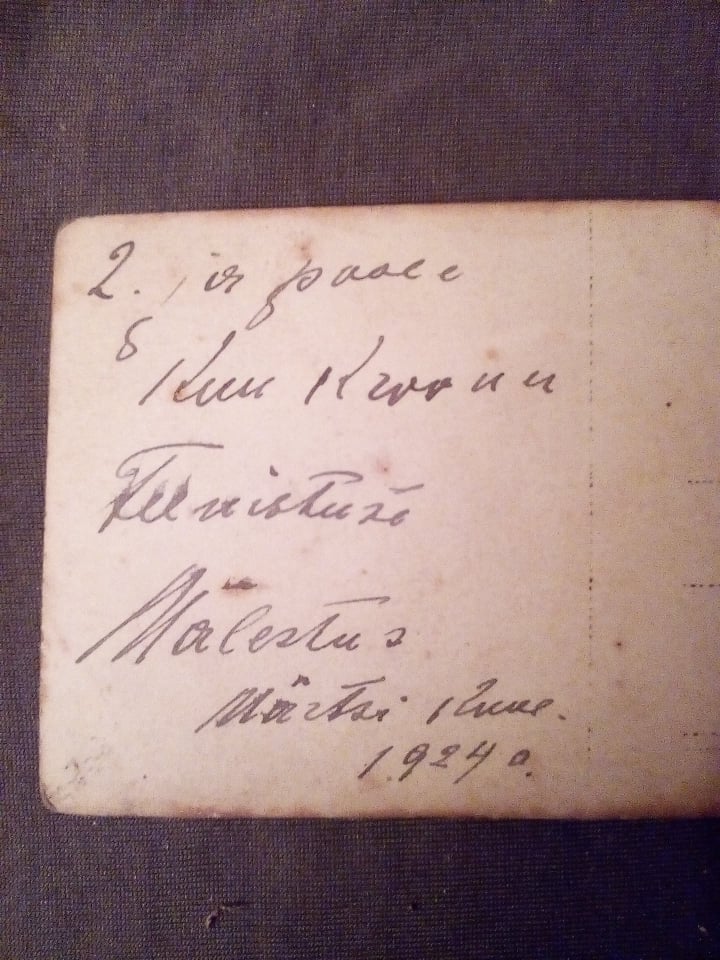 2. ja poole
Kuu Kroonu
Teenistuse
Mälestus
Märtsi Kuul.
1924 a.